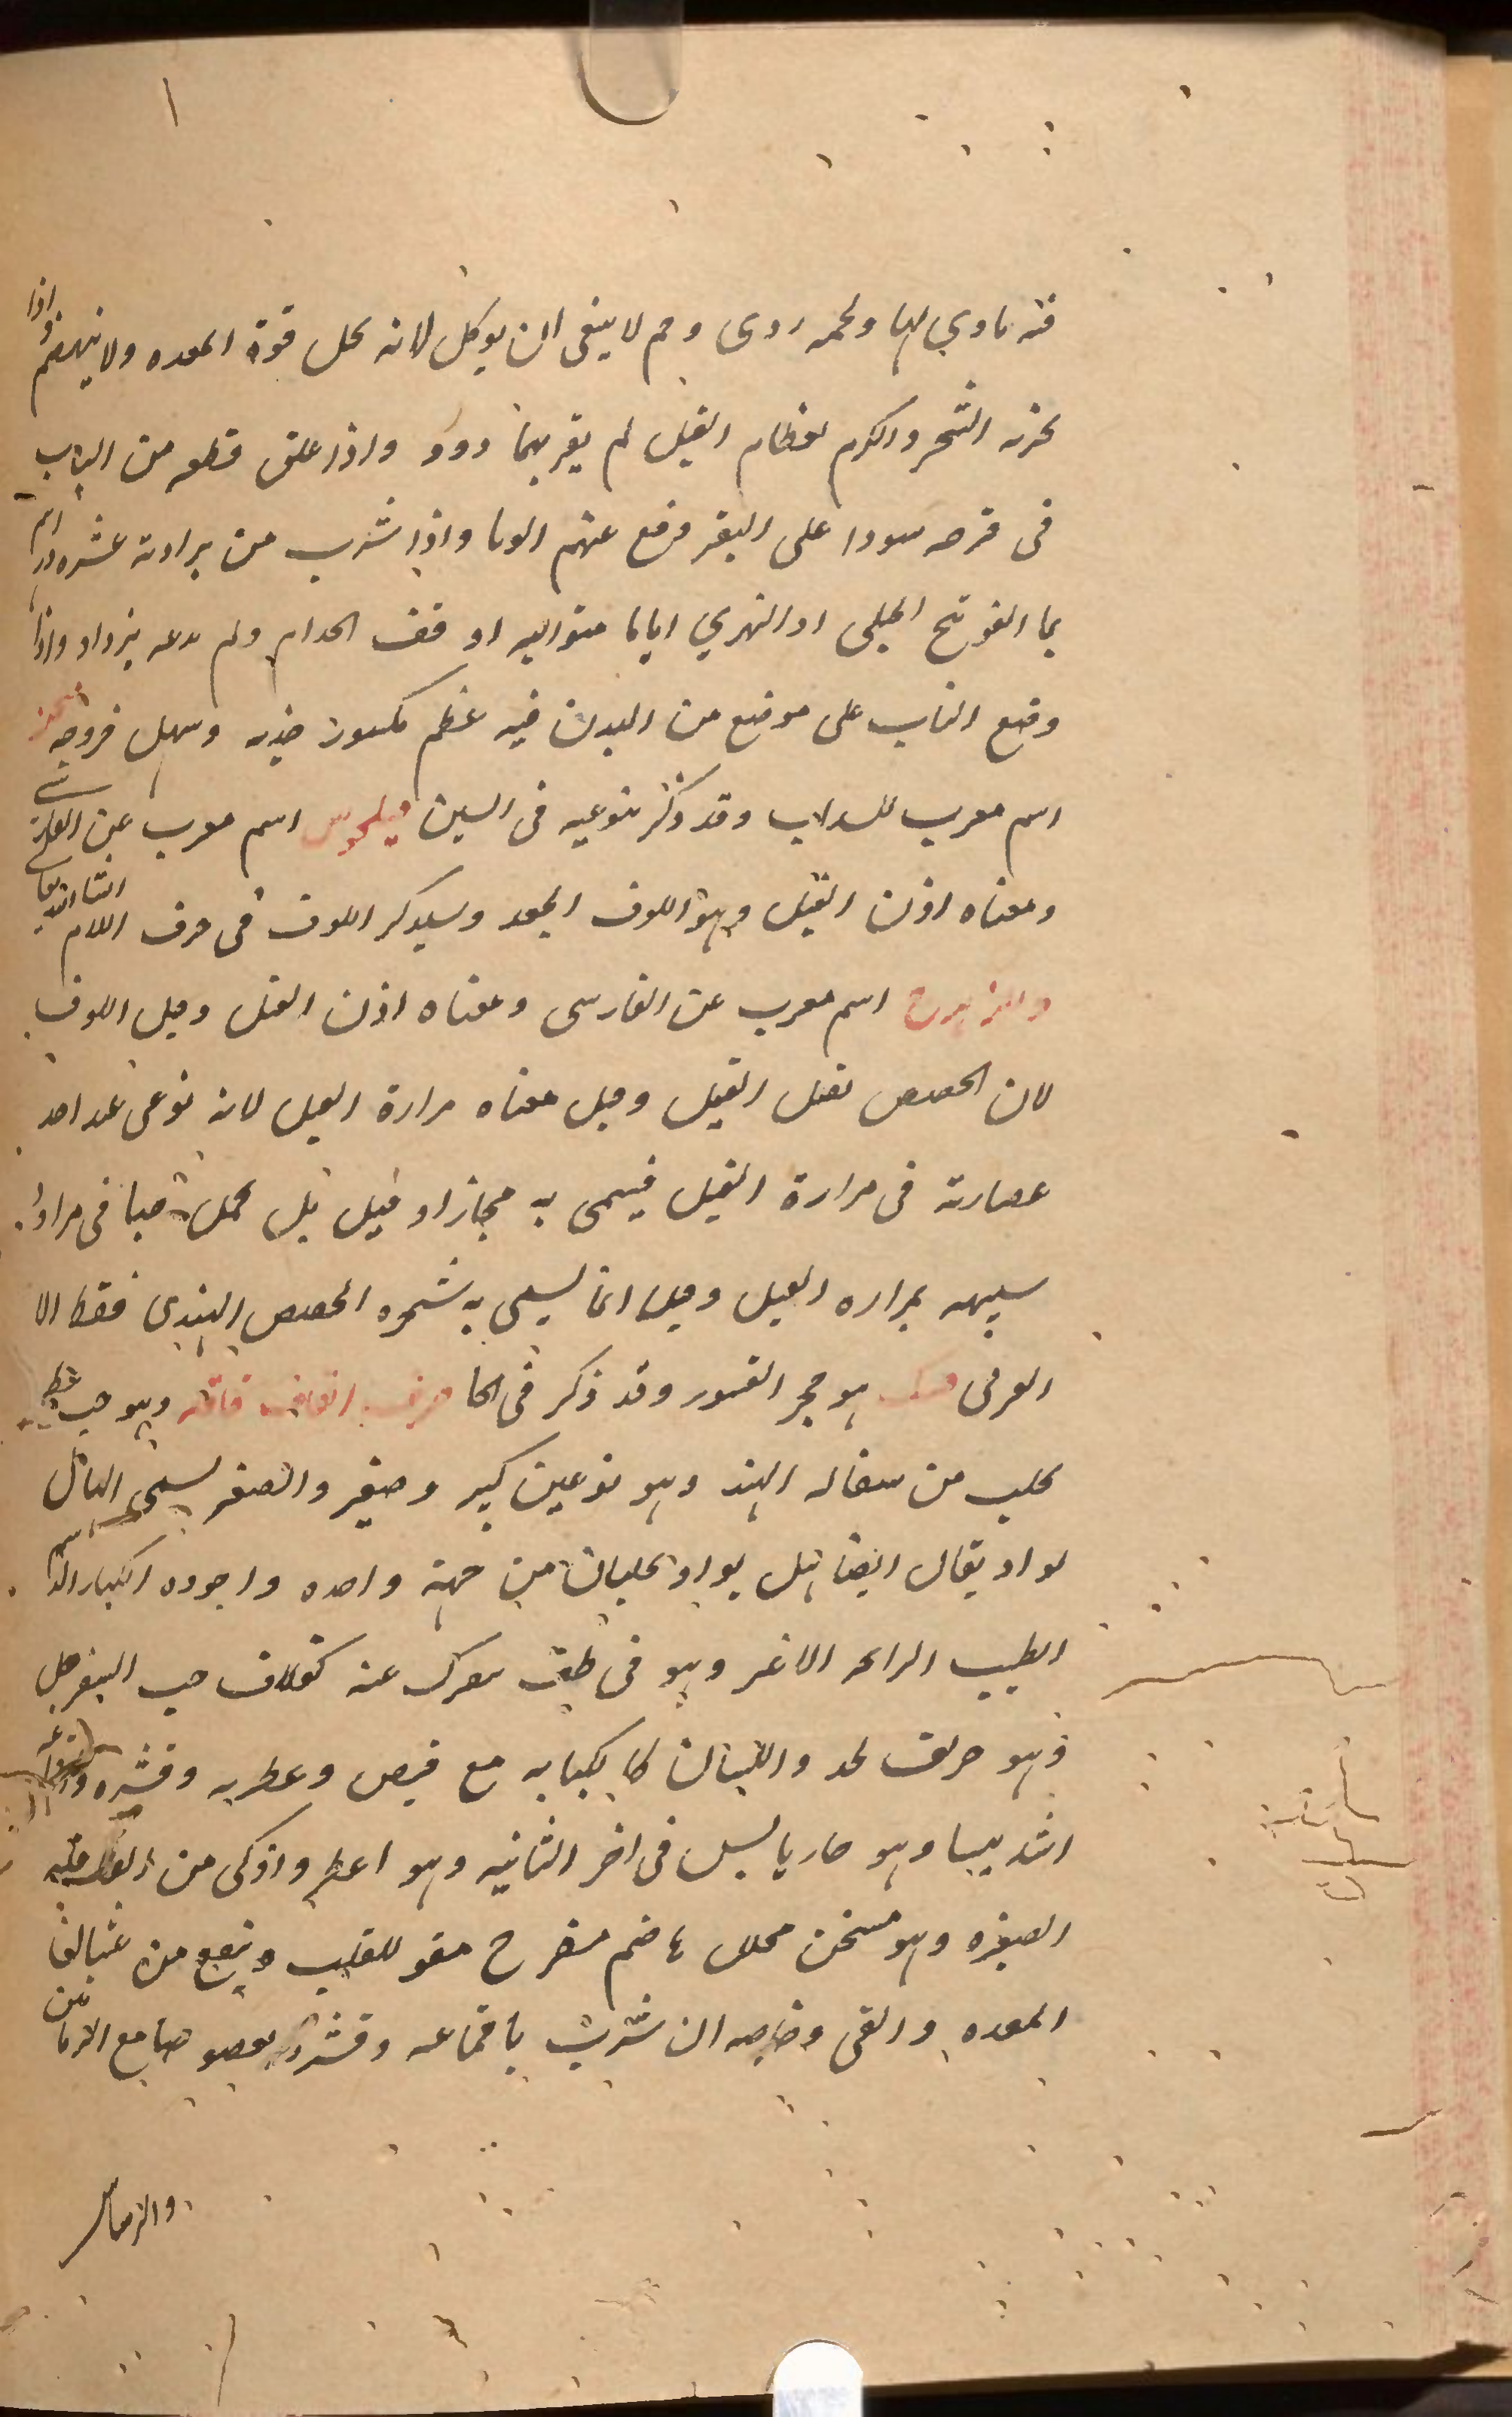 فيه ياوي اليها ولحمه ردى وخم لا ينبغى ان يوكل لانه يحل قوة المعده ولا ينهضم واذا
بخرت الشجر والكرم بعظام الفيل لم يقربهما دود واذا علق قطعه من الناب
فى خرقه سودا على البقر دفع عنهم الوبا واذا شرب من برادته عشره دراهم
بما الفوتنج الجبلى او النهري اياما متواليه اوقف الجدام ولم يدعه يزداد واذا
وضع الناب على موضع من البدن فيه عظم مكسور جذبه وسهل خروجه فيجن
اسم معرب للسداب وقد ذكر بنوعيه فى السين فيلجوس اسم معرب عن
ومعناه اذن الفيل وهو اللوف الجعد وسيدكر اللوف فى حرف اللام انشا الله تعالى
اسم معرب عن الفارسى ومعناه اذن الفيل وقيل اللوف
لان الحضض يقتل الفيل وقيل معناه مرارة الفيل لانه نوعى عند اخد
عصارته فى مرارة الفيل فيسمى به مجازا وقيل بل
شبيهه بمراره الفيل وقيل انما يسمى به شجره الحضض الهندى فقط الا
العرفى فينك هو حجر القيسور وقد ذكر فى الحا حرف القاف قاقله وهو حب عطر
يجلب من سفاله الهند وهو نوعين كبير وصغير والصغير يسمى الهال
بوا ويقال ايضا هيل بوا ويجلبان من جهة واحده واجوده الكبار الدسم
الطيب الرايحه الاغبر وهو فى
وهو حريف يحد واللسان كالكبابه مع قبض وعطريه وقشره
اشد يبسا وهو حار يابس فى اخر الثانيه وهو اعطر واذكى من القاقله
الصغيره وهو مسخن محلل هاضم مفرح مقو للقلب وينفع من غثيان
المعده والقى وخاصه ان شربت باقماعه وقشره بعصو صا مع الرمانين
والزمان